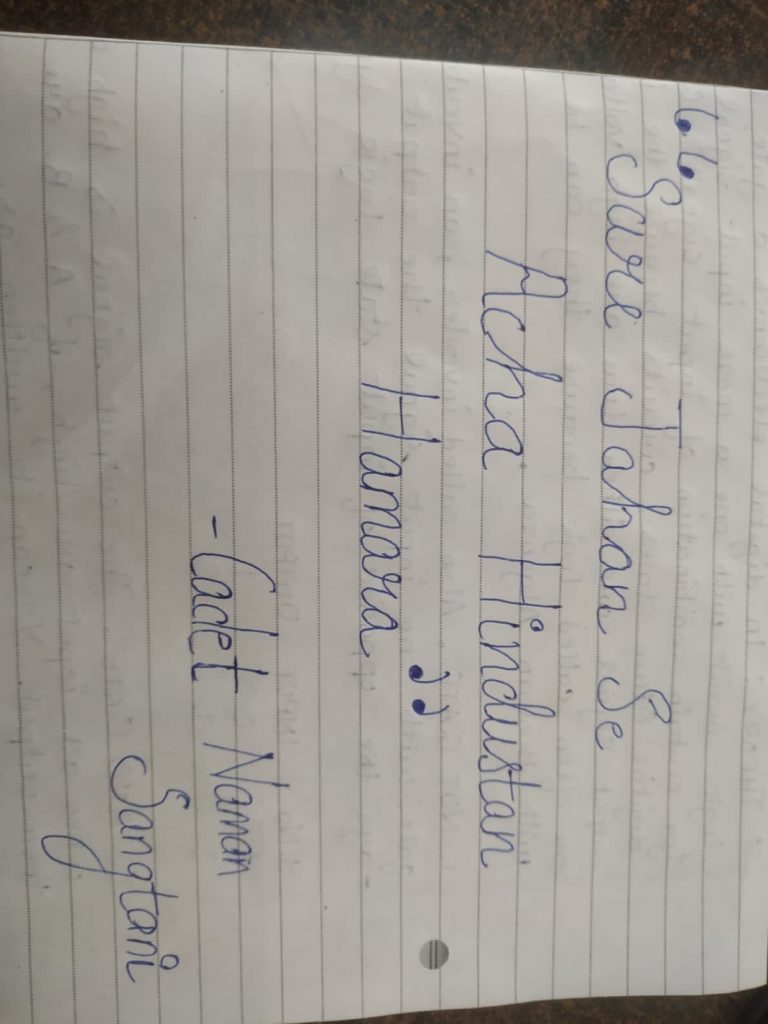 “Sare Jahan Se
Acha Hindustan
Hamara”
-Cadet Naman
Sangtani